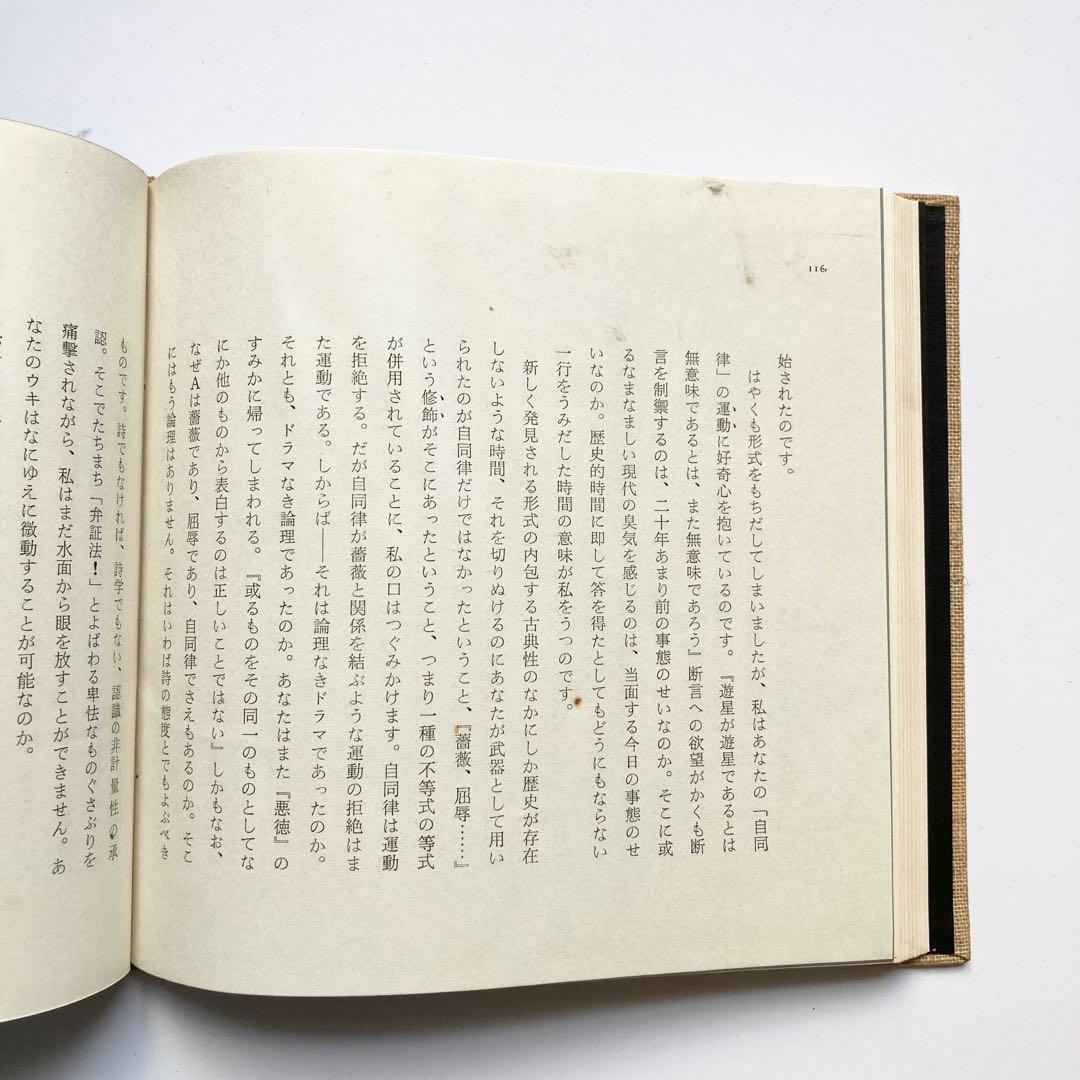 116
始されたのです。
はやくも形式をもちだしてしまいましたが、私はあなたの「自同
律」の運動に好奇心を抱いているのです。『遊星が遊星であるとは
無意味であるとは、また無意味であろう』断言への欲望がかくも断
言を制禦するのは、二十年あまり前の事態のせいなのか。そこに或
るなまなましい現代の臭気を感じるのは、当面する今日の事態のせ
いなのか。歴史的時間に即して答を得たとしてもどうにもならない
一行をうみだした時間の意味が私をうつのです。
新しく発見される形式の内包する古典性のなかにしか歴史が存在
しないような時間、それを切りぬけるのにあなたが武器として用い
られたのが自同律だけではなかったということ、『薔薇、屈辱……』
という修飾がそこにあったということ、つまり一種の不等式の等式
が併用されていることに、私の口はつぐみかけます。自同律は運動
を拒絶する。だが自同律が薔薇と関係を結ぶような運動の拒絶はま
た運動である。しからば――それは論理なきドラマであったのか。
それとも、ドラマなき論理であったのか。あなたはまた『悪徳』の
すみかに帰ってしまわれる。『或るものをその同一のものとしてな
にか他のものから表白するのは正しいことではない』しかもなお、
なぜAは薔薇であり、屈辱であり、自同律でさえもあるのか。そこ
にはもう論理はありません。それはいわば詩の態度とでもよぶべき
ものです。詩でもなければ、詩学でもない、認識の非計量性の承
認。そこでたちまち「弁証法！」とよばわる卑怯なものぐさぶりを
痛撃されながら、私はまだ水面から眼を放すことができません。あ
なたのウキはなにゆえに微動することが可能なのか。